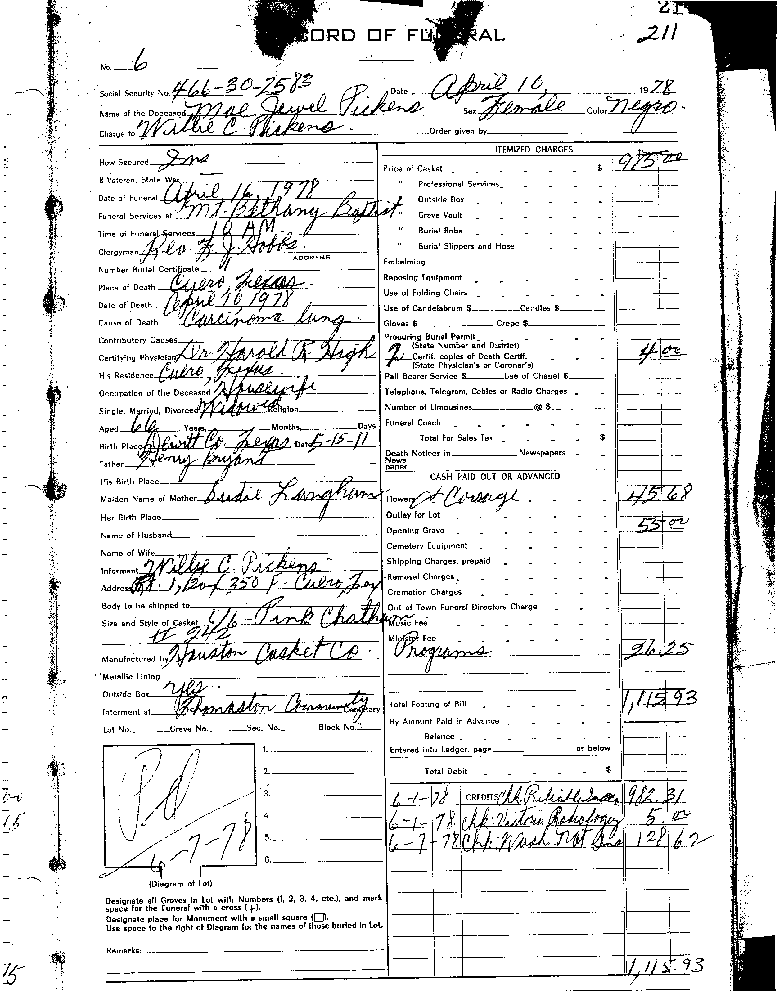 211
RECORD OF FUNERAL
No. 6
Social Security No. 466-30-7583 Date April 10, 1978
Name of the Deceased Mae Jewel Pickens Sex Female Color Negro
Charge to Willie C. Pickens Order given by
How Secured Ins
If Veteran, State War
Date of Funeral April 16, 1978
Funeral Services at Mt. Bethany Baptist
Time of Funeral Services AM
Clergyman Rev.
ADDRESS
Number Burial Certificate
Place of Death Cuero, Texas
Date of Death April 10 1978
Cause of Death Carcinoma lung
Contributory Causes
Certifying Physician Dr. Harold R. High
His Residence Cuero, Texas
Occupation of the Deceased Housewife
Single, Married, Divorced Widowed Religion
Aged 66 Years Months Days
Birth Place Dewitt Co. Texas Date 5-15-11
Father Henry Bryant
His Birth Place
Maiden Name of Mother Langham
Her Birth Place
Name of Husband
Name of Wife
Informant Willie C. Pickens
Address Rt. 1, Box 350 F. Cuero, Tex
Body to be shipped to
Size and Style of Casket 6/6 - Pink Chatham
# 242
Manufactured by Houston Casket Co.
Metallic Lining
Outside Box yes
Interment at Thomaston Community Cemetery
Lot No. Grave No. Sec. No. Block No.
Pd
6-7-78
1.
2.
3.
4.
5.
6.
(Diagram of Lot)
Designate all Graves in Lot with Numbers (1, 2, 3, 4, etc.), and mark
space for the Funeral with a cross (+).
Designate place for Monument with a small square (□).
Use space to the right of Diagram for the names of those buried in Lot.
Remarks:
ITEMIZED CHARGES
Price of Casket $ 985.00
" Professional Services
" Outside Box
" Grave Vault
" Burial Robe
" Burial Slippers and Hose
Embalming
Reposing Equipment
Use of Folding Chairs
Use of Candelabrum $ Candles $
Gloves $ Crepe $
Procuring Burial Permit
(State Number and District)
2 Certif. copies of Death Certf. 4.00
(State Physician's or Coroner's)
Pall Bearer Service $ Use of Chapel $
Telephone, Telegram, Cables or Radio Charges
Number of Limousines @ $
Funeral Coach
Total For Sales Tax $
Death Notices in Newspapers
News
paper
CASH PAID OUT OR ADVANCED
Flowers & Corsage 45.68
Outlay for Lot
Opening Grave 55.00
Cemetery Equipment
Shipping Charges, prepaid
Removal Charges
Cremation Charges
Out of Town Funeral Directors Charge
Music Fee
Minister Fee
Programs 26.25
Total Footing of Bill 1,115.93
By Amount Paid in Advance
Balance
Entered into Ledger, page or below
Total Debit $
6-1-78 CREDITS Chk. Reliable 982.31
6-1-78 Chk. Victoria Radiology 5.00
6-7-78 Chk. Wash Nat Ins 128.62
1,115.93